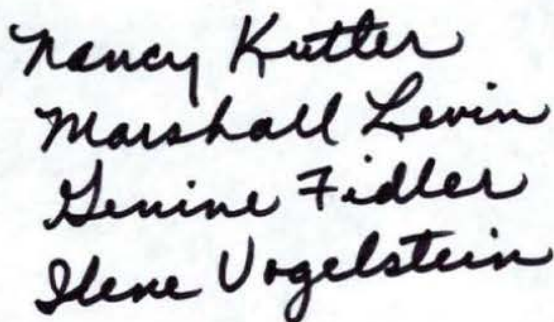 Nancy Kutler
Marshall Levin
Genine Fidler
Ilene Vogelstein